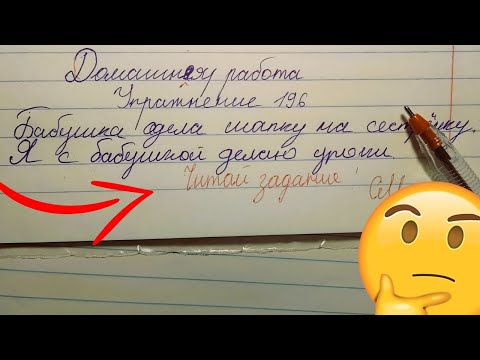 Домашняя работа
Упражнение 196
Бабушка одела шапку на сестрёнку.
Я с бабушкой делаю уроки.
Читай задания!